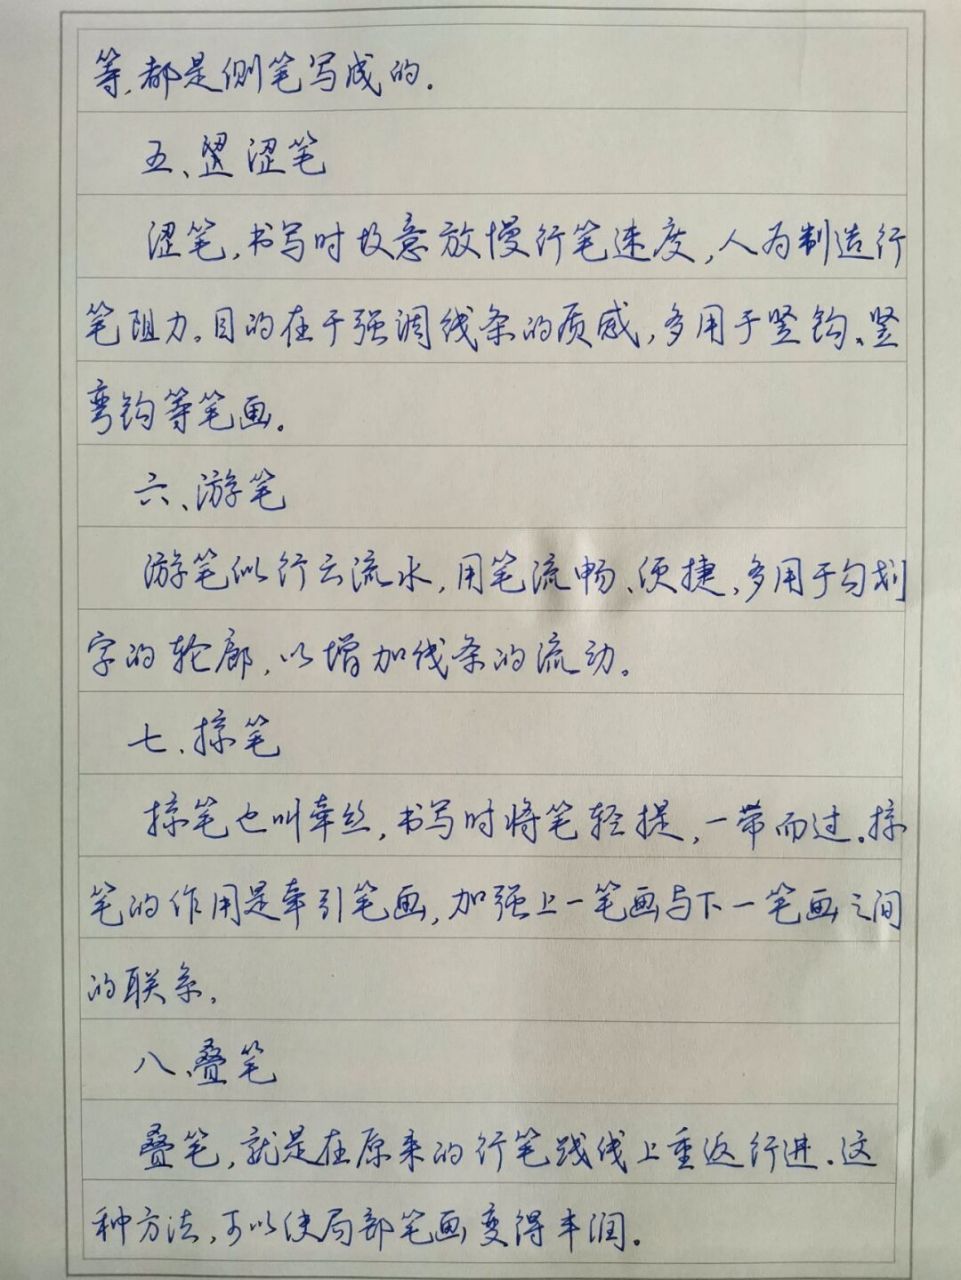 等,都是侧笔写成的.
五、涩笔
涩笔,书写时故意放慢行笔速度,人为制造行
笔阻力。目的在于强调线条的质感,多用于竖钩、竖
弯钩等笔画。
六、游笔
游笔似行云流水,用笔流畅、便捷,多用于勾划
字的轮廓,以增加线条的流动。
七、掠笔
掠笔也叫牵丝,书写时将笔轻提,一带而过.掠
笔的作用是牵引笔画,加强上一笔画与下一笔画之间
的联系,
八、叠笔
叠笔,就是在原来的行笔线上重返行进.这
种方法,可以使局部笔画变得丰润。